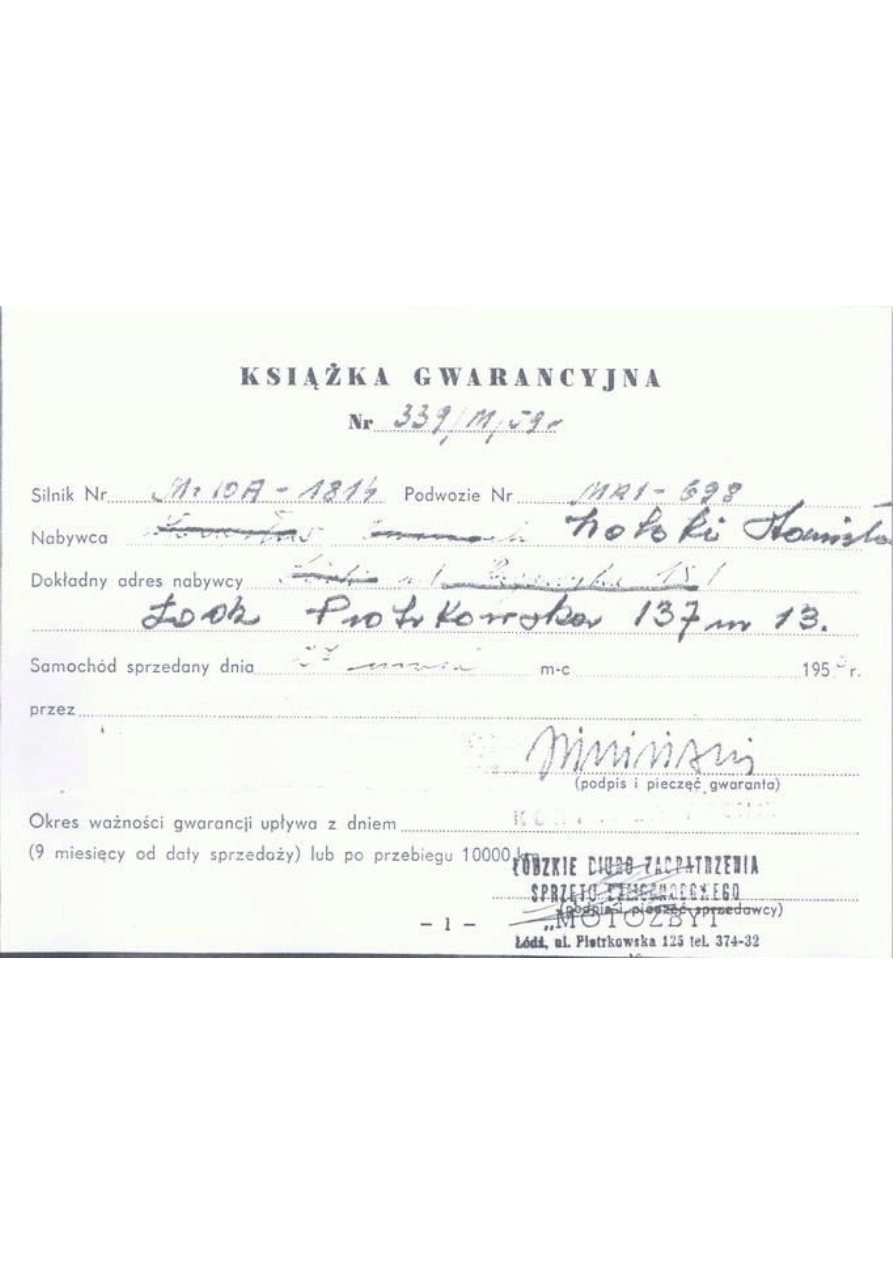 KSIĄŻKA GWARANCYJNA
Nr 339/M/59r
Silnik Nr Mr 10A - 1814 Podwozie Nr MR1 - 698
Nabywca
Dokładny adres nabywcy
Łódź Piotrkowska 137 m 13.
Samochód sprzedany dnia 27 m-c 195 r.
przez
(podpis i pieczęć gwaranta)
Okres ważności gwarancji upływa z dniem
(9 miesięcy od daty sprzedaży) lub po przebiegu 10000 km
ŁÓDZKIE BIURO ZAOPATRZENIA
SPRZĘTU
(podpis i pieczęć sprzedawcy)
„MOTOZBYT"
Łódź, ul. Piotrkowska 125 tel. 374-32
– 1 –